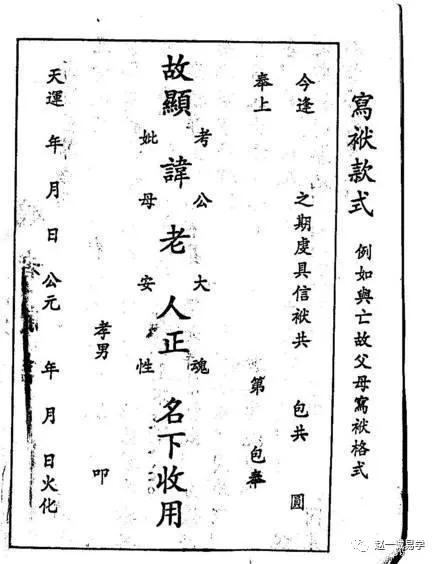 寫袱款式 例如與亡故父母寫袱格式
今逢 之期虔具信袱共 包共 圓
奉上 第 包奉
考公大魂
故顯 諱老人正 名下收用
妣母安性
孝男 叩
天運 年 月 日 公元 年 月 日火化
赵一 易学